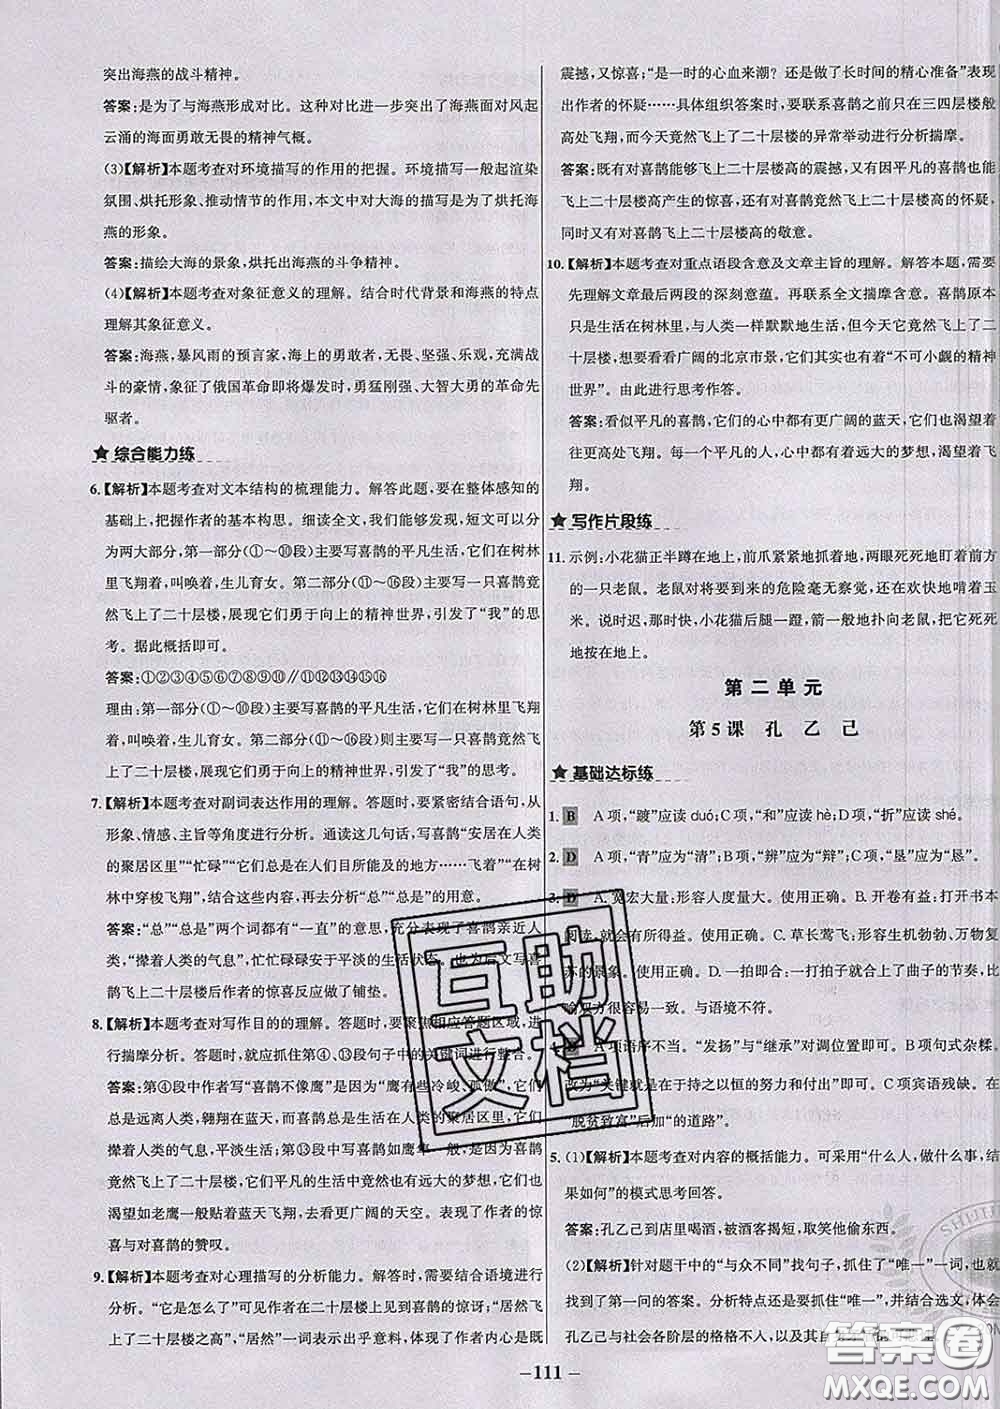 突出海燕的战斗精神。
答案:是为了与海燕形成对比。这种对比进一步突出了海燕面对风起
云涌的海面勇敢无畏的精神气概。
(3)【解析】本题考查对环境描写的作用的把握。环境描写一般起渲染
氛围、烘托形象、推动情节的作用,本文中对大海的描写是为了烘托海
燕的形象。
答案:描绘大海的景象,烘托出海燕的斗争精神。
(4)【解析】本题考查对象征意义的理解。结合时代背景和海燕的特点
理解其象征意义。
答案:海燕,暴风雨的预言家,海上的勇敢者,无畏、坚强、乐观,充满战
斗的豪情,象征了俄国革命即将爆发时,勇猛刚强、大智大勇的革命先
驱者。
★ 综合能力练
6.【解析】本题考查对文本结构的梳理能力。解答此题,要在整体感知的
基础上,把握作者的基本构思。细读全文,我们能够发现,短文可以分
为两大部分,第一部分(①～⑩段)主要写喜鹊的平凡生活,它们在树林
里飞翔着,叫唤着,生儿育女。第二部分(⑪～⑯段)主要写一只喜鹊竟
然飞上了二十层楼,展现它们勇于向上的精神世界,引发了“我”的思
考。据此概括即可。
答案:①②③④⑤⑥⑦⑧⑨⑩∥⑪⑫⑬⑭⑮⑯
理由:第一部分(①～⑩段)主要写喜鹊的平凡生活,它们在树林里飞翔
着,叫唤着,生儿育女。第二部分(⑪～⑯段)主要写一只喜鹊竟然飞上
了二十层楼,展现它们勇于向上的精神世界,引发了“我”的思考。
7.【解析】本题考查对副词表达作用的理解。答题时,要紧密结合语句,从
形象、情感、主旨等角度进行分析。通读这几句话,写喜鹊“安居在人类
的聚居区里”“忙碌”“它们总是以人类所能及的地方……飞着”“在树
林中穿梭飞翔”,结合这些内容,再去赏析“总”“总是”的用意。
答案:“总”“总是”两个词都有“一直”的意思,充分表现了喜鹊亲近人
类,“撵着人类的气息”,忙忙碌碌安于平淡的生活状态。也为后文写喜
鹊飞上二十层楼后作者的惊喜反应做了铺垫。
8.【解析】本题考查对写作目的的理解。答题时,要聚焦相应答题区域,进
行揣摩分析。答题时,就应抓住第④、⑬段句子中的关键词进行整合。
答案:第④段中作者写“喜鹊不像鹰”,是因为“鹰有些冷峻、孤傲”,它们
脱离人类,翱翔在蓝天,而小喜鹊却安居在人类的聚居区里,它们撵着
人类的气息,平凡、平淡生活;第⑬段中写喜鹊如鹰隼一般,是因为喜鹊
飞上了二十层楼,它们平凡的生活中竟然也有远大的梦想,它们也
渴望如老鹰一般贴着蓝天飞翔,看更广阔的天空。表现了作者的惊
喜与对喜鹊的赞叹。
9.【解析】本题考查对心理描写的分析能力。解答时,需要结合语境进行
分析。“它是怎么了”可见作者在二十层楼上见到喜鹊的惊讶;“居然飞
上了二十层楼之高”,“居然”一词表示出乎意料,体现了作者内心是既
震撼,又惊喜;“是一时的心血来潮?还是做了长时间的精心准备”表现
出作者的怀疑……具体组织答案时,要联系喜鹊之前只在三四层楼般
高处飞翔,而今天竟然飞上了二十层楼的异常举动进行分析揣摩。
答案:既有对喜鹊能够飞上二十层楼高的震撼,又有因平凡的喜鹊能
飞上二十层楼高产生的惊喜,还有对喜鹊飞上二十层楼高的怀疑,
同时又有对喜鹊飞上二十层楼高的敬意。
10.【解析】本题考查对重点语段含意及文章主旨的理解。解答本题,需
要先理解文章最后两段的深刻意蕴。再联系全文揣摩意旨。喜鹊原本
只是生活在树林里,与人类一样默默地生活,但今天它竟然飞上了二
十层楼,想要去看看更广阔的北京市景,可见这里有“不可小觑的精神
世界”。由此进行思考作答。
答案:看似平凡的喜鹊,它们的心中都有更广阔的蓝天,它们也渴望着
往更高处飞翔。每一个平凡的人,心中都有着更远大的梦想,等待着飞
翔。
★ 写作片段练
11. 示例:小花猫正半蹲在地上,前爪紧紧地抓着地,两眼死死地盯着前方
的一只老鼠。老鼠对将要到来的危险毫无察觉,还在欢快地啃着玉
米。说时迟、那时快,小花猫后腿一蹬,箭一般地扑向老鼠,把它死死地
按在地上。
第二单元
第5课 孔乙己
★ 基础达标练
1. B A项,“踱”应读 duó;C项,“和”应读 hè;D项,“折”应读 shé。
2. D A项,“青”应为“清”;B项,“辨”应为“辩”;C项,“垦”应为“恳”。
3. D A. 宽宏大量:形容人度量大。使用正确。B. 开卷有益:打开书本
阅读,就会有所得益。使用正确。C. 草长莺飞:形容生机勃勃、万物复
苏的景象。使用正确。D. 一拍即合:一打拍子就合上了曲子的节奏,比
喻双方很容易一致。与语境不符。
4. A项语序不当。“发扬”与“继承”对调位置即可。B项句式杂糅。
改为“关键就是要干出生力”即可。C项宾语残缺。在
“脱贫致富”后加“的道路”。
5. (1)【解析】本题考查对内容的概括能力。可采用“什么人,做什么事,结
果如何”的模式思考回答。
答案:孔乙己到店里喝酒,被酒客揭短,取笑他偷东西。
(2)【解析】针对题干中的“与众不同”找句子,抓住了“唯一”一词,也就
找到了第一问的答案。分析特点还是要抓住“唯一”,并结合选文,体会
孔乙己与社会各阶层的格格不入,以及其自
－111－
互助
文档
答案圈
MXQE.COM